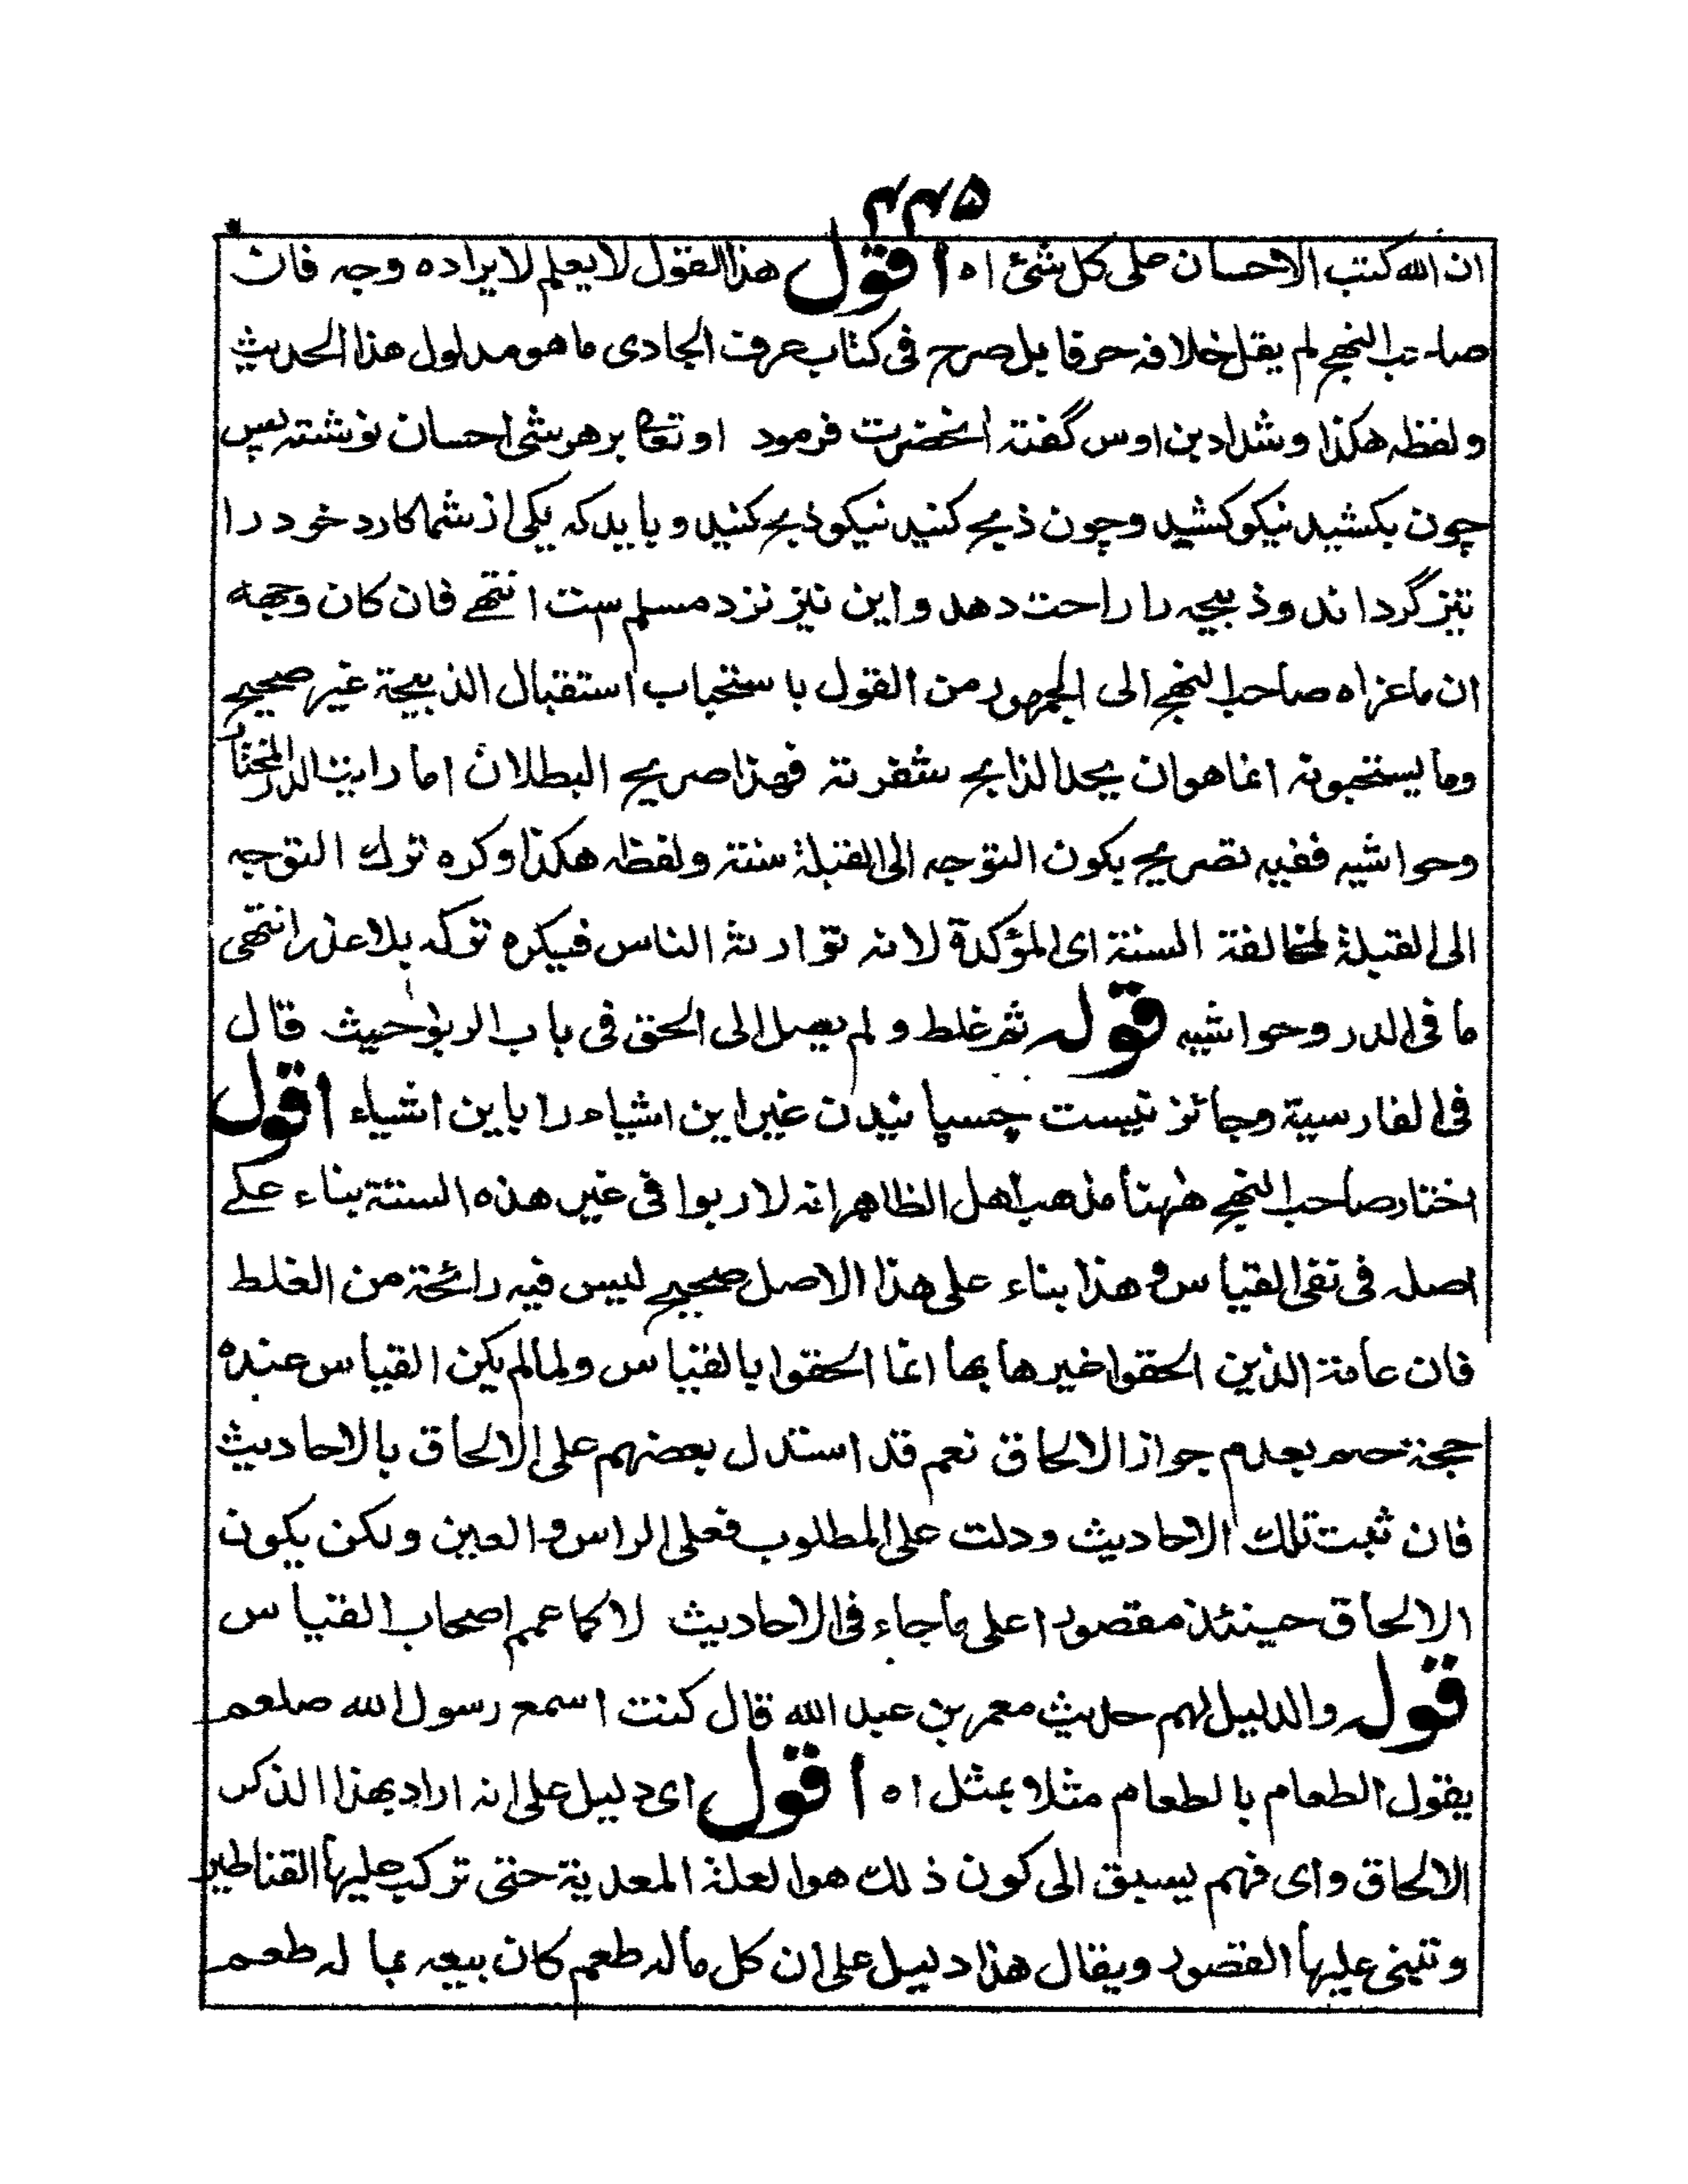 ۵۴۴
ان الله كتب الاحسان على كل شئ اه اقول هذا القول لا يعلم لايراده وجه فان
صاحب النهج لم يقل خلافه حرفا بل صرح فى كتاب عرف الجادى ما هو مدلول هذا الحديث
ولفظه هكذا وشداد بن اوس گفته انحضرت فرمود او تعالى بر هر شى احسان نوشته پس
چون بكشيد نيكو كشيد وچون ذبح كنيد نيكو ذبح كنيد و بايد كه يكى از شما كارد خود را
تيز گرداند وذبيحه را راحت دهد و اين نيز نزد مسلم ست انتهے فان كان وجهه
ان ما عزاه صاحب النهج الى الجمهور من القول باستحباب استقبال الذبيحة غير صحيح
وما يستحبونه انما هو ان يحد الذابح شفرته فهذا صريح البطلان اما رايت الدر المختار
وحواشيه ففيه تصريح بكون التوجه الى القبلة سنة ولفظه هكذا وكره ترك التوجه
الى القبلة لمخالفة السنة اى المؤكدة لانه توارثه الناس فيكره تركه بلا عذر انتهى
ما فى الدر وحواشيه قوله ثم غلط و لم يصل الى الحق فى باب الربوا حيث قال
فى الفارسية وجائز نيست چسپانيدن غير اين اشياء را باين اشياء اقول
اختار صاحب النهج ههنا مذهب اهل الظاهر انه لا ربوا فى غير هذه الستة بناء علے
اصله فى نفى القياس و هذا بناء على هذا الاصل صحيح ليس فيه رائحة من الغلط
فان عامة الذين الحقوا غيرها بها انما الحقوا بالقياس ولما لم يكن القياس عنده
حجة حكم بعدم جواز الالحاق نعم قد استدل بعضهم على الالحاق بالاحاديث
فان ثبت تلك الاحاديث ودلت على المطلوب فعلى الراس و العين ولكن يكون
الالحاق حينئذ مقصورا على ما جاء فى الاحاديث لا كما عمم اصحاب القياس
قوله والدليل لهم حديث معمر بن عبد الله قال كنت اسمع رسول الله صلعم
يقول الطعام بالطعام مثلا بمثل اه اقول اى دليل على انه اراد بهذا الذكر
الالحاق واى فهم يسبق الى كون ذلك هو العلة المعدية حتى تركب عليها القناطير
وتبنى عليها القصور ويقال هذا دليل على ان كل ما له طعم كان بيعه بما له طعم